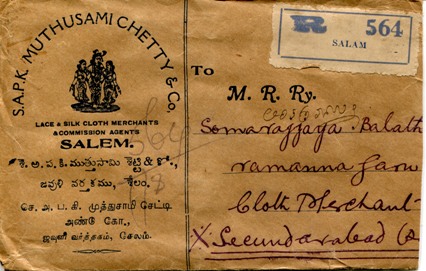 S.A.P.K. MUTHUSAMI CHETTY & Co.
LACE & SILK CLOTH MERCHANTS
& COMMISSION AGENTS
SALEM.
செ. அ. ப. கி. முத்துசாமி செட்டி
அண்டு கோ.,
ஜவுளி வர்த்தகம், சேலம்.
R 564
SALAM
To
M. R. Ry.
Somarajjaya Balath
ramanna Garu
Cloth Merchant
X Secunderabad
564